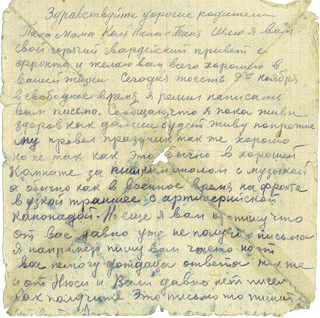 Здравствуйте дорогие родители
Папа мама Коля Нина и Таня Шлю я вам
свой горячий Гвардейский привет с
фронта и желаю вам всего хорошего в
вашей жизни. Сегодня то есть 9го ноября
в свободное время я решил написать
вам письмо. Сообщаю что я пока жив и
здоров как дальше будет живу попрежне
му провел праздник так же хорошо
но не так как это обычно в хорошей
комнате за столом с музыкой
а обычно как в военное время на фронте
в узкой траншее с артиллерийской
канонадой. И еще я вам пишу что
от вас давно уже не получал письма
я например пишу вам часто но от
вас немогу дождаться ответа так же
и от Нюси и Вали давно нет писем
как получите это письмо то пишите